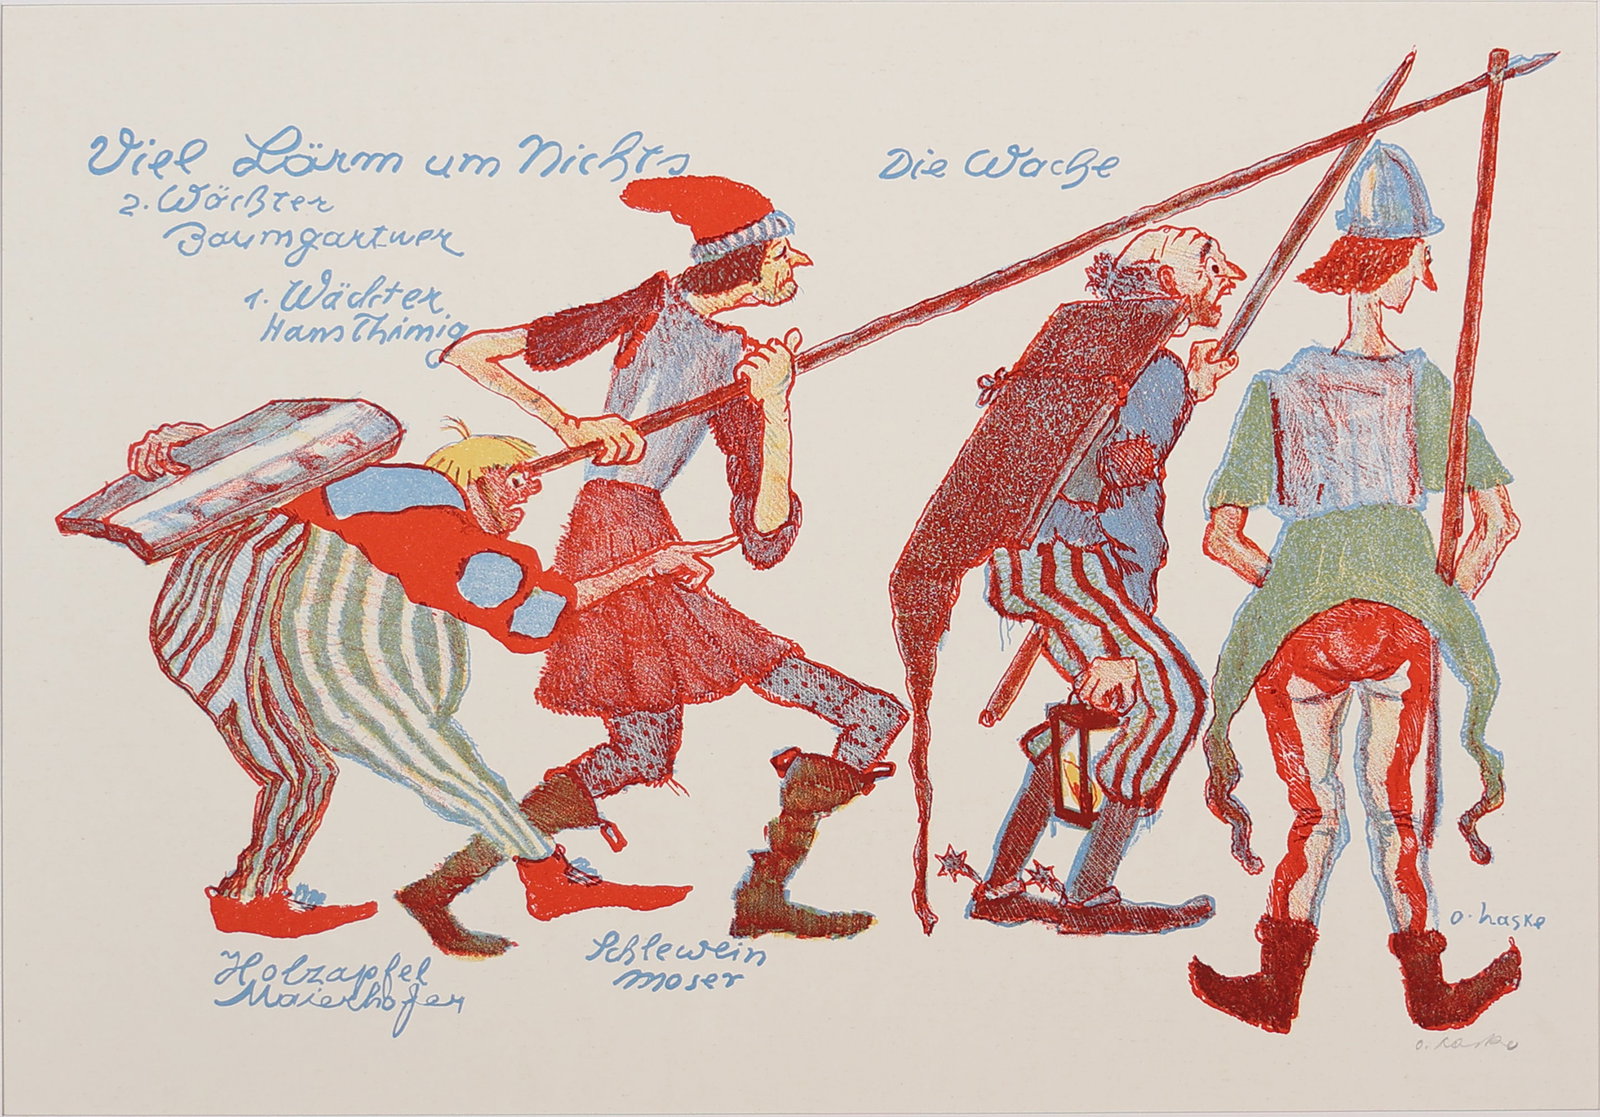 Viel Lärm um Nichts
2. Wächter
Baumgartner
1. Wächter
Hans Thimig
Die Wache
Holzapfel
Maierhofer
Schlewein
Moser
O. Laske
O. Laske